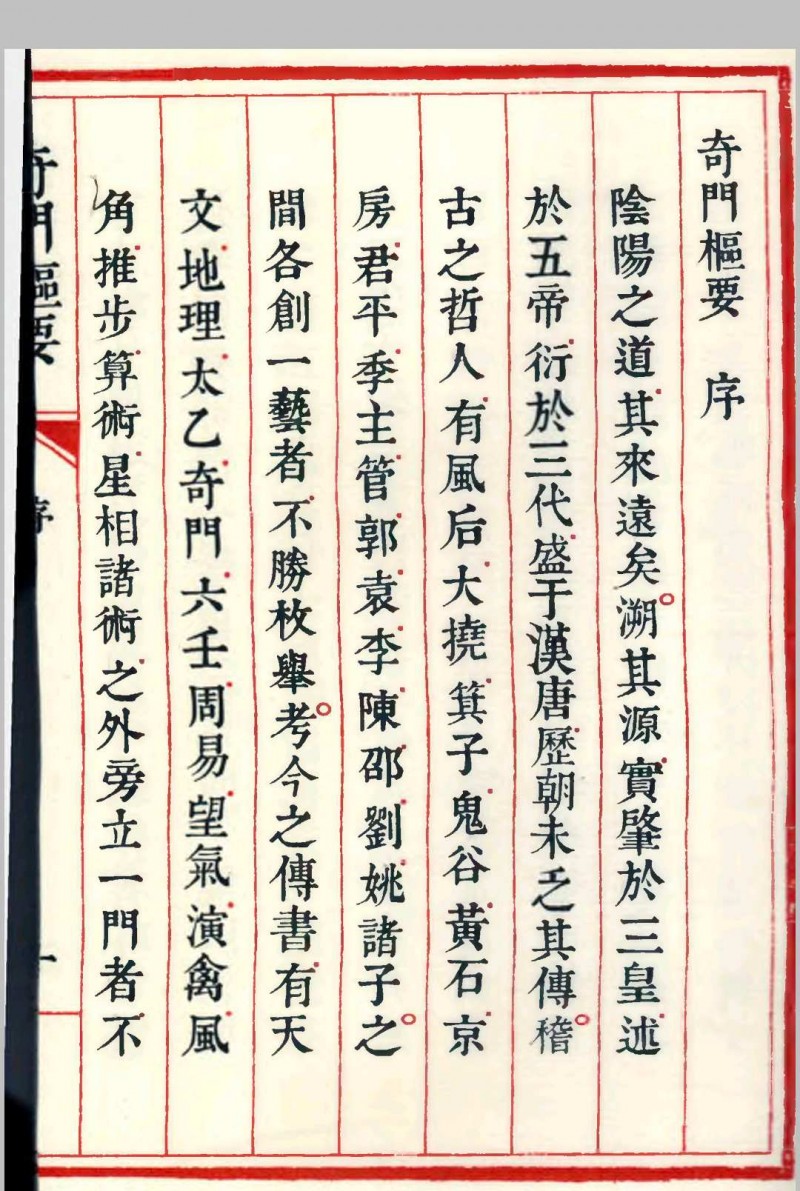 奇門樞要 序
陰陽之道其來遠矣。溯其源實肇於三皇述
於五帝衍於三代盛于漢唐歷朝未乏其傳。稽
古之哲人有風后大撓箕子鬼谷黃石京
房君平季主管郭袁李陳邵劉姚諸子之。
間各創一藝者不勝枚舉。考今之傳書有天
文地理太乙奇門六壬周易望氣演禽風
角推步算術星相諸術之外旁立一門者不
奇門樞要 序 一